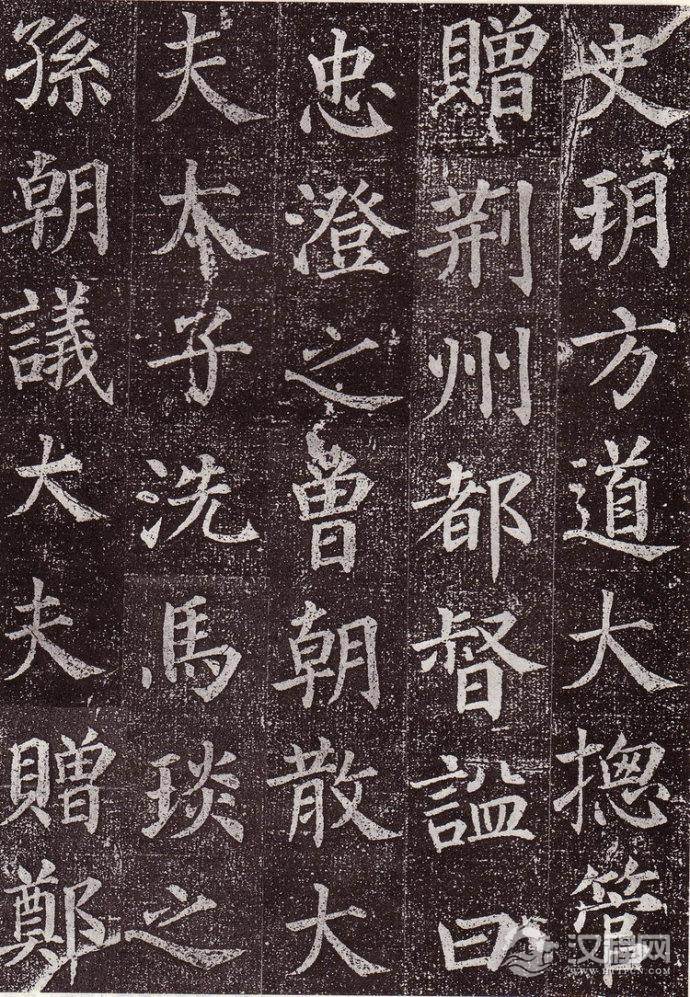 史玥方道大揔管
贈荆州都督謚曰
忠澄之曾朝散大
夫本子洗馬琰之
孫朝議大夫贈鄭
汉程网
WWW.HTTPCN.COM